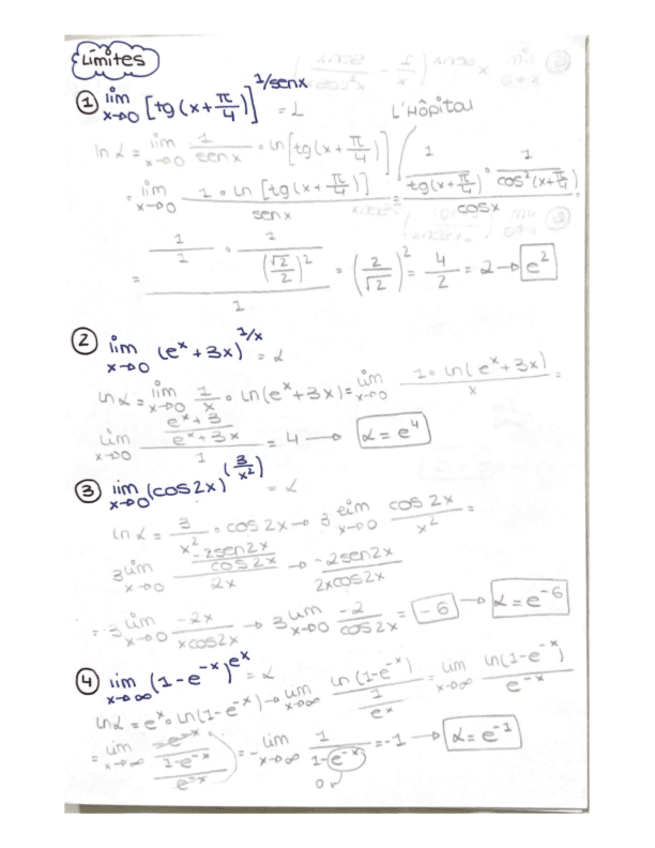 Límites
① lim x→0 [tg(x+π/4)]^1/senx = L L'Hôpital
ln L = lim x→0 1/senx · ln[tg(x+π/4)]
= lim x→0 1·ln[tg(x+π/4)] / senx = (1/tg(x+π/4) · 1/cos²(x+π/4)) / cosx =
= (1/1 · 1/(√2/2)²) / 1 = (2/√2)² = 4/2 = 2 → e²
② lim x→0 (eˣ + 3x)^1/x = L
ln L = lim x→0 1/x · ln(eˣ + 3x) = lim x→0 1·ln(eˣ + 3x) / x =
lim x→0 ((eˣ + 3)/(eˣ + 3x)) / 1 = 4 → L = e⁴
③ lim x→0 (cos2x)^(3/x²) = L
ln L = 3/x² · cos2x → 3 lim x→0 cos2x / x² =
3 lim x→0 (-2sen2x/cos2x) / 2x → -2sen2x / 2xcos2x
= 3 lim x→0 -2x / xcos2x → 3 lim x→0 -2 / cos2x = -6 → L = e⁻⁶
④ lim x→∞ (1-e⁻ˣ)^eˣ = L
ln L = eˣ · ln(1-e⁻ˣ) → lim x→∞ ln(1-e⁻ˣ) / (1/eˣ) = lim x→∞ ln(1-e⁻ˣ) / e⁻ˣ
= lim x→∞ (-e⁻ˣ/(1-e⁻ˣ)) / e⁻ˣ = - lim x→∞ 1 / (1-e⁻ˣ) = -1 → L = e⁻¹
0